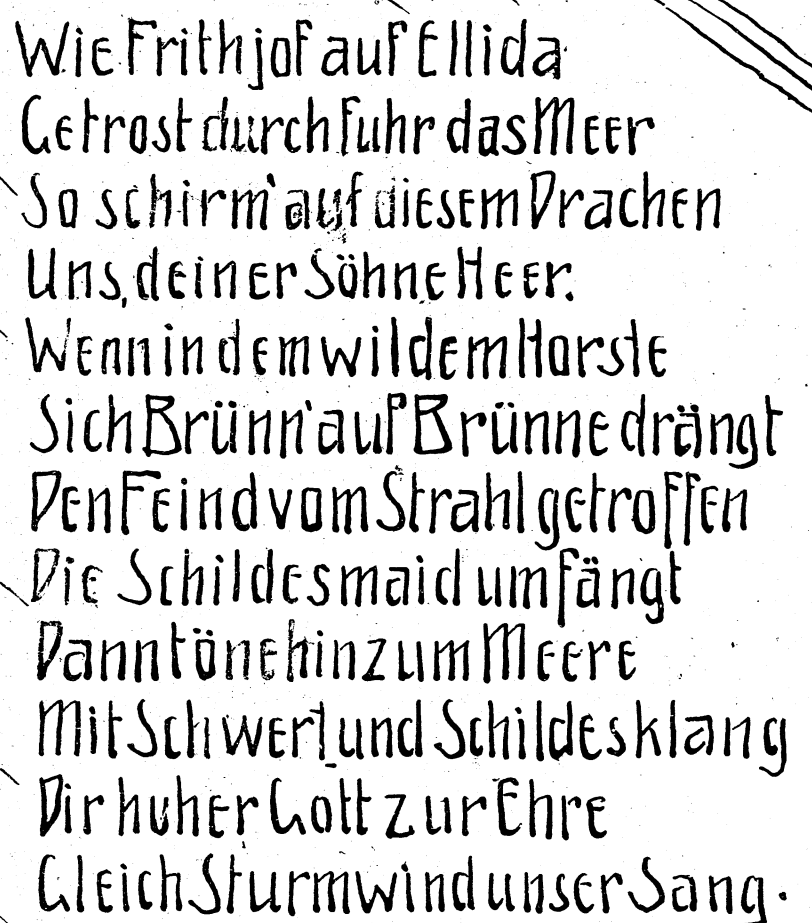 Wie Frithjof auf Ellida
Getrost durchfuhr das Meer
So schirm' auf diesem Drachen
Uns, deiner Söhne Heer.
Wenn in dem wildem Horste
Sich Brünn' auf Brünne drängt
Den Feind vom Strahl getroffen
Die Schildesmaid umfängt
Dann töne hin zum Meere
Mit Schwert und Schildesklang
Dir huher Gott zur Ehre
Gleich Sturmwind unser Sang.